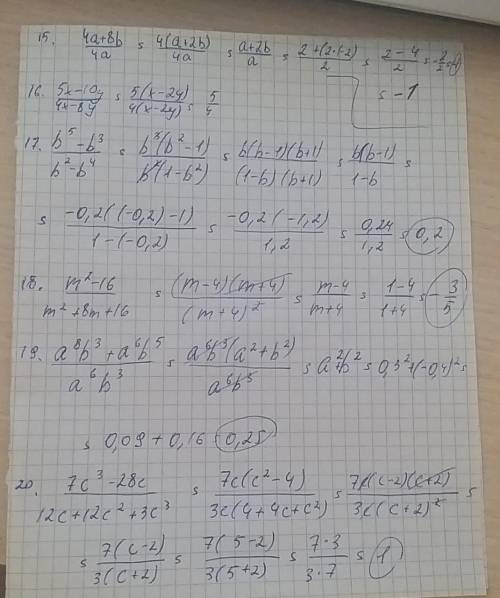 15. (4a+8b)/4a = 4(a+2b)/4a = (a+2b)/a = (2+(2·(-2)))/2 = (2-4)/2 = -2/2 =
= -1
16. (5x-10y)/(4x-8y) = 5(x-2y)/4(x-2y) = 5/4
17. (b⁵-b³)/(b²-b⁴) = b³(b²-1)/b²(1-b²) = b(b-1)(b+1)/(1-b)(b+1) = b(b-1)/(1-b) =
= -0,2((-0,2)-1)/(1-(-0,2)) = -0,2(-1,2)/1,2 = 0,24/1,2 = 0,2
18. (m²-16)/(m²+8m+16) = (m-4)(m+4)/(m+4)² = (m-4)/(m+4) = (1-4)/(1+4) = -3/5
19. (a⁸b³+a⁶b⁵)/a⁶b³ = a⁶b³(a²+b²)/a⁶b³ = a²+b² = 0,3²+(-0,4)² =
= 0,09 + 0,16 = 0,25
20. (7c³-28c)/(12c+12c²+3c³) = 7c(c²-4)/3c(4+4c+c²) = 7c(c-2)(c+2)/3c(c+2)² =
= 7(c-2)/3(c+2) = 7(5-2)/3(5+2) = 7·3/3·7 = 1